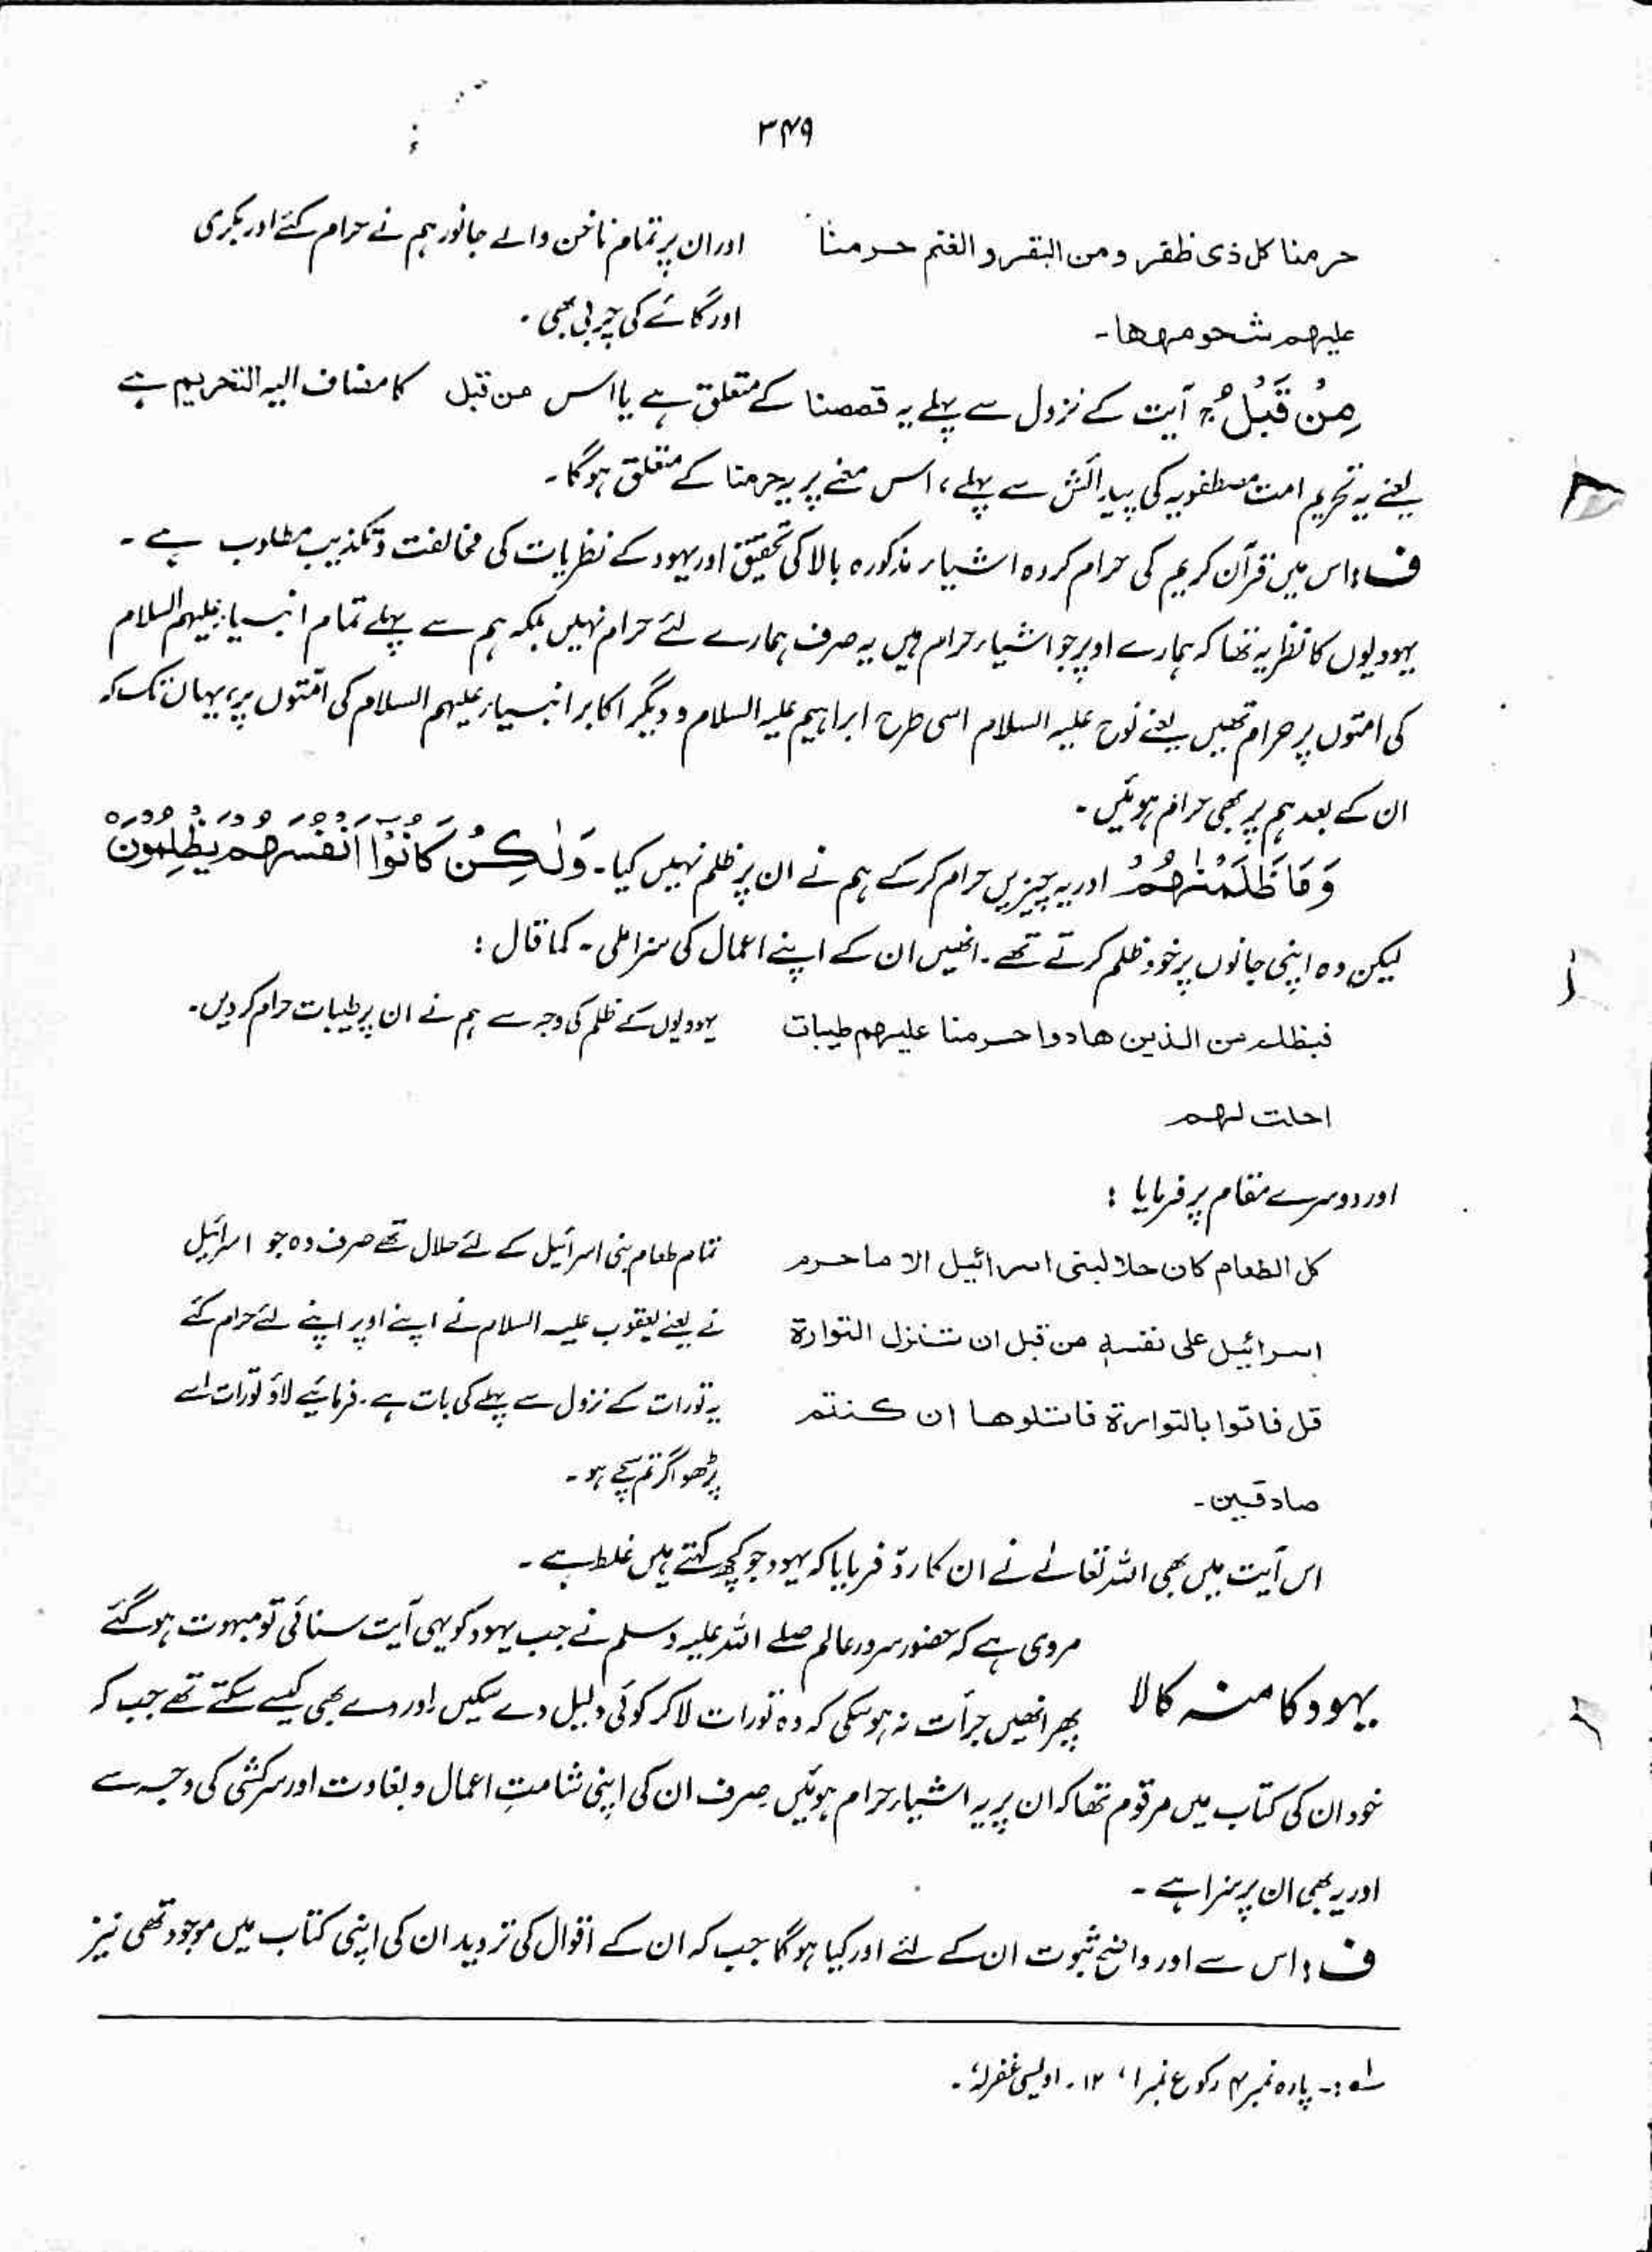 ۳۴۹
حرمنا كل ذى ظفر ومن البقر و الغنم حرمنا
عليهم شحومهها۔
اور ان پر تمام ناخن والے جانور ہم نے حرام کئے اور بکری
اور گائے کی چربی بھی ۔
مِنْ قَبْلُ ج آیت کے نزول سے پہلے یہ قصصنا کے متعلق ہے یا اس من قبل کا مضاف الیہ التحریم ہے
یعنے یہ تحریم امت مصطفویہ کی پیدائش سے پہلے ، اس معنے پر یہ حرمنا کے متعلق ہوگا۔
ف : اس میں قرآن کریم کی حرام کردہ اشیاء مذکورہ بالا کی تحقیق اور یہود کے نظریات کی مخالفت و تکذیب مطلوب ہے ۔
یہودیوں کا نظریہ تھا کہ ہمارے اوپر جو اشیاء حرام ہیں یہ صرف ہمارے لئے حرام نہیں بلکہ ہم سے پہلے تمام انبیاء علیہم السلام
کی امتوں پر حرام تھیں یعنے نوح علیہ السلام اسی طرح ابراہیم علیہ السلام و دیگر اکابر انبیاء علیہم السلام کی امّتوں پر، یہاں تک کہ
ان کے بعد ہم پر بھی حرام ہوئیں ۔
وَمَا ظَلَمْنٰهُمْ اور یہ چیزیں حرام کرکے ہم نے ان پر ظلم نہیں کیا۔ وَلٰكِنْ كَانُوْٓا اَنْفُسَهُمْ يَظْلِمُوْنَ
لیکن وہ اپنی جانوں پر خود ظلم کرتے تھے ۔ انھیں ان کے اپنے اعمال کی سزا ملی ۔ کما قال :
فبظلم من الذين هادوا حرمنا عليهم طيبات
احلت لهم
یہودیوں کے ظلم کی وجہ سے ہم نے ان پر طیبات حرام کردیں۔
اور دوسرے مقام پر فرمایا :
كل الطعام كان حلا لبنى اسرائيل الا ما حرم
اسرائيل على نفسه من قبل ان تنزل التوارة
قل فاتوا بالتوارة فاتلوها ان كنتم
صادقين۔
تمام طعام بنی اسرائیل کے لئے حلال تھے صرف وہ جو اسرائیل
نے یعنے یعقوب علیہ السلام نے اپنے اوپر اپنے لئے حرام کئے
یہ تورات کے نزول سے پہلے کی بات ہے ۔ فرمائیے لاؤ تورات اسے
پڑھو اگر تم سچے ہو ۔
اس آیت میں بھی اللہ تعالےٰ نے ان کا ردّ فرمایا کہ یہود جو کچھ کہتے ہیں غلط ہے ۔
یہود کا منہ کالا
مروی ہے کہ حضور سرور عالم صلے اللہ علیہ وسلم نے جب یہود کو یہی آیت سنائی تو مبہوت ہوگئے
پھر انھیں جرأت نہ ہوسکی کہ وہ تورات لاکر کوئی دلیل دے سکیں اور دے بھی کیسے سکتے تھے جب کہ
خود ان کی کتاب میں مرقوم تھا کہ ان پر یہ اشیاء حرام ہوئیں صرف ان کی اپنی شامتِ اعمال و بغاوت اور سرکشی کی وجہ سے
اور یہ بھی ان پر سزا ہے ۔
ف : اس سے اور واضح ثبوت ان کے لئے اور کیا ہوگا جب کہ ان کے اقوال کی تردید ان کی اپنی کتاب میں موجود تھی نیز
لہ :۔ پارہ نمبر ۴ رکوع نمبر ۱ ، ۱۲ ۔ اویسی غفرلہٗ ۔